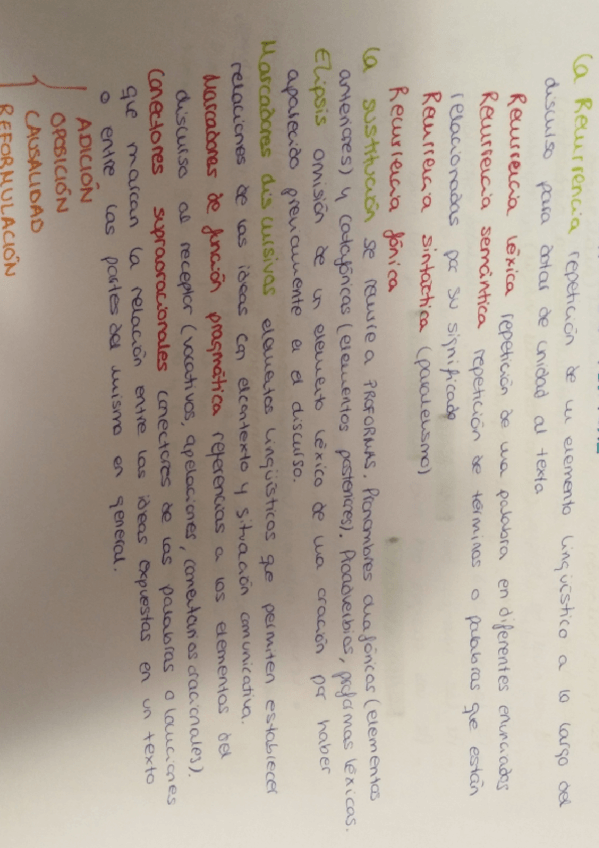 La Recurrencia repetición de un elemento lingüístico a lo largo del
discurso para dotar de unidad al texto
Recurrencia léxica repetición de una palabra en diferentes enunciados
Recurrencia semántica repetición de términos o palabras que están
relacionadas por su significado
Recurrencia sintáctica (paralelismo)
Recurrencia fónica
La sustitución se recurre a PROFORMAS. Pronombres anafóricos (elementos
anteriores) y catafóricas (elementos posteriores). Proadverbios, proformas léxicas.
Elipsis omisión de un elemento léxico de una oración por haber
aparecido previamente en el discurso.
Marcadores discursivos elementos lingüísticos que permiten establecer
relaciones de las ideas con el contexto y situación comunicativa.
Marcadores de función pragmática referencias a los elementos del
discurso al receptor (vocativos, apelaciones, comentarios oracionales).
Conectores supraoracionales conectores de las palabras o locuciones
que marcan la relación entre las ideas expuestas en un texto
o entre las partes del mismo en general.
ADICIÓN
OPOSICIÓN
CAUSALIDAD
REFORMULACIÓN